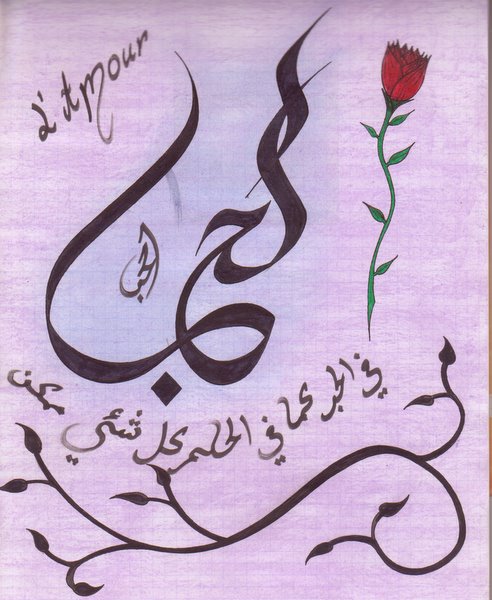 L'Amour
الحب
الحب
في الحب كما في الحلم كل شئي ممكن